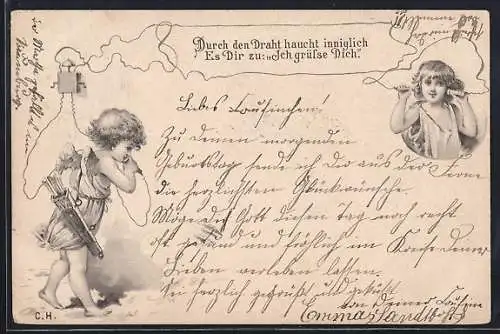 Durch den Draht haucht inniglich
Es Dir zu: „Ich grüsse Dich."
Liebes Cousinchen!
Zu Deinem morgenden
Geburtstag sende ich Dir aus der Ferne
die herzlichsten Glückwünsche.
Möge der Gott diesen Tag noch recht
oft gesund und fröhlich im Kreise Deiner
Lieben verleben lassen.
Sei herzlich gegrüßt und geküßt
von Deiner Cousine
Emma
C. H.